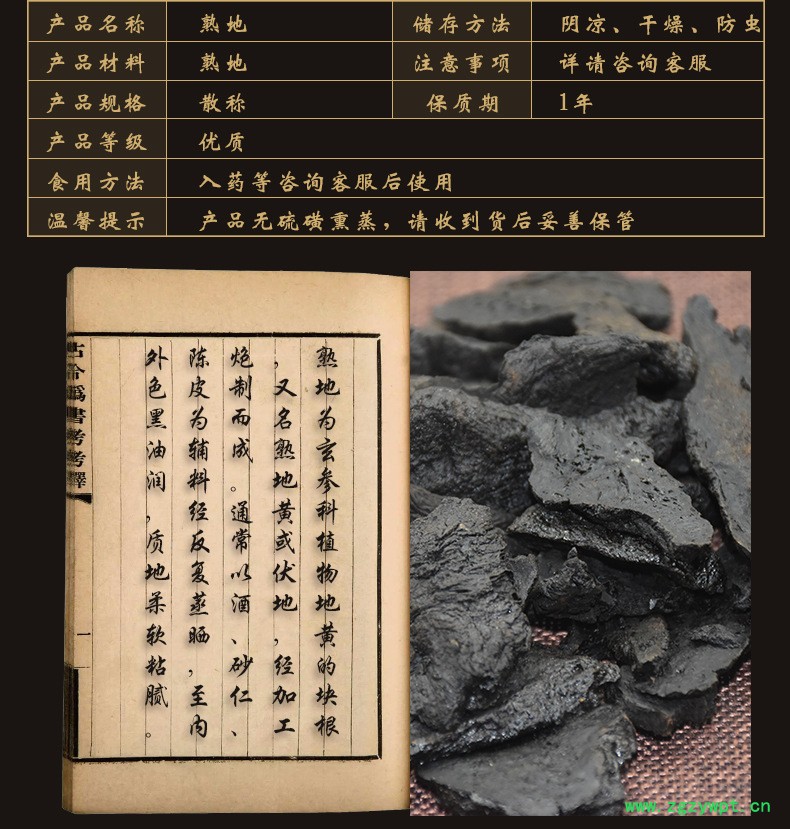 产品名称 熟地 储存方法 阴凉、干燥、防虫
产品材料 熟地 注意事项 详请咨询客服
产品规格 散称 保质期 1年
产品等级 优质
食用方法 入药等咨询客服后使用
温馨提示 产品无硫磺熏蒸，请收到货后妥善保管
熟地为玄参科植物地黄的块根
，又名熟地黄或伏地，经加工
炮制而成。通常以酒、砂仁、
陈皮为辅料经反复蒸晒，至内
外色黑油润，质地柔软粘腻。
古今伪書考考釋
一
www.zgzywpt.cn